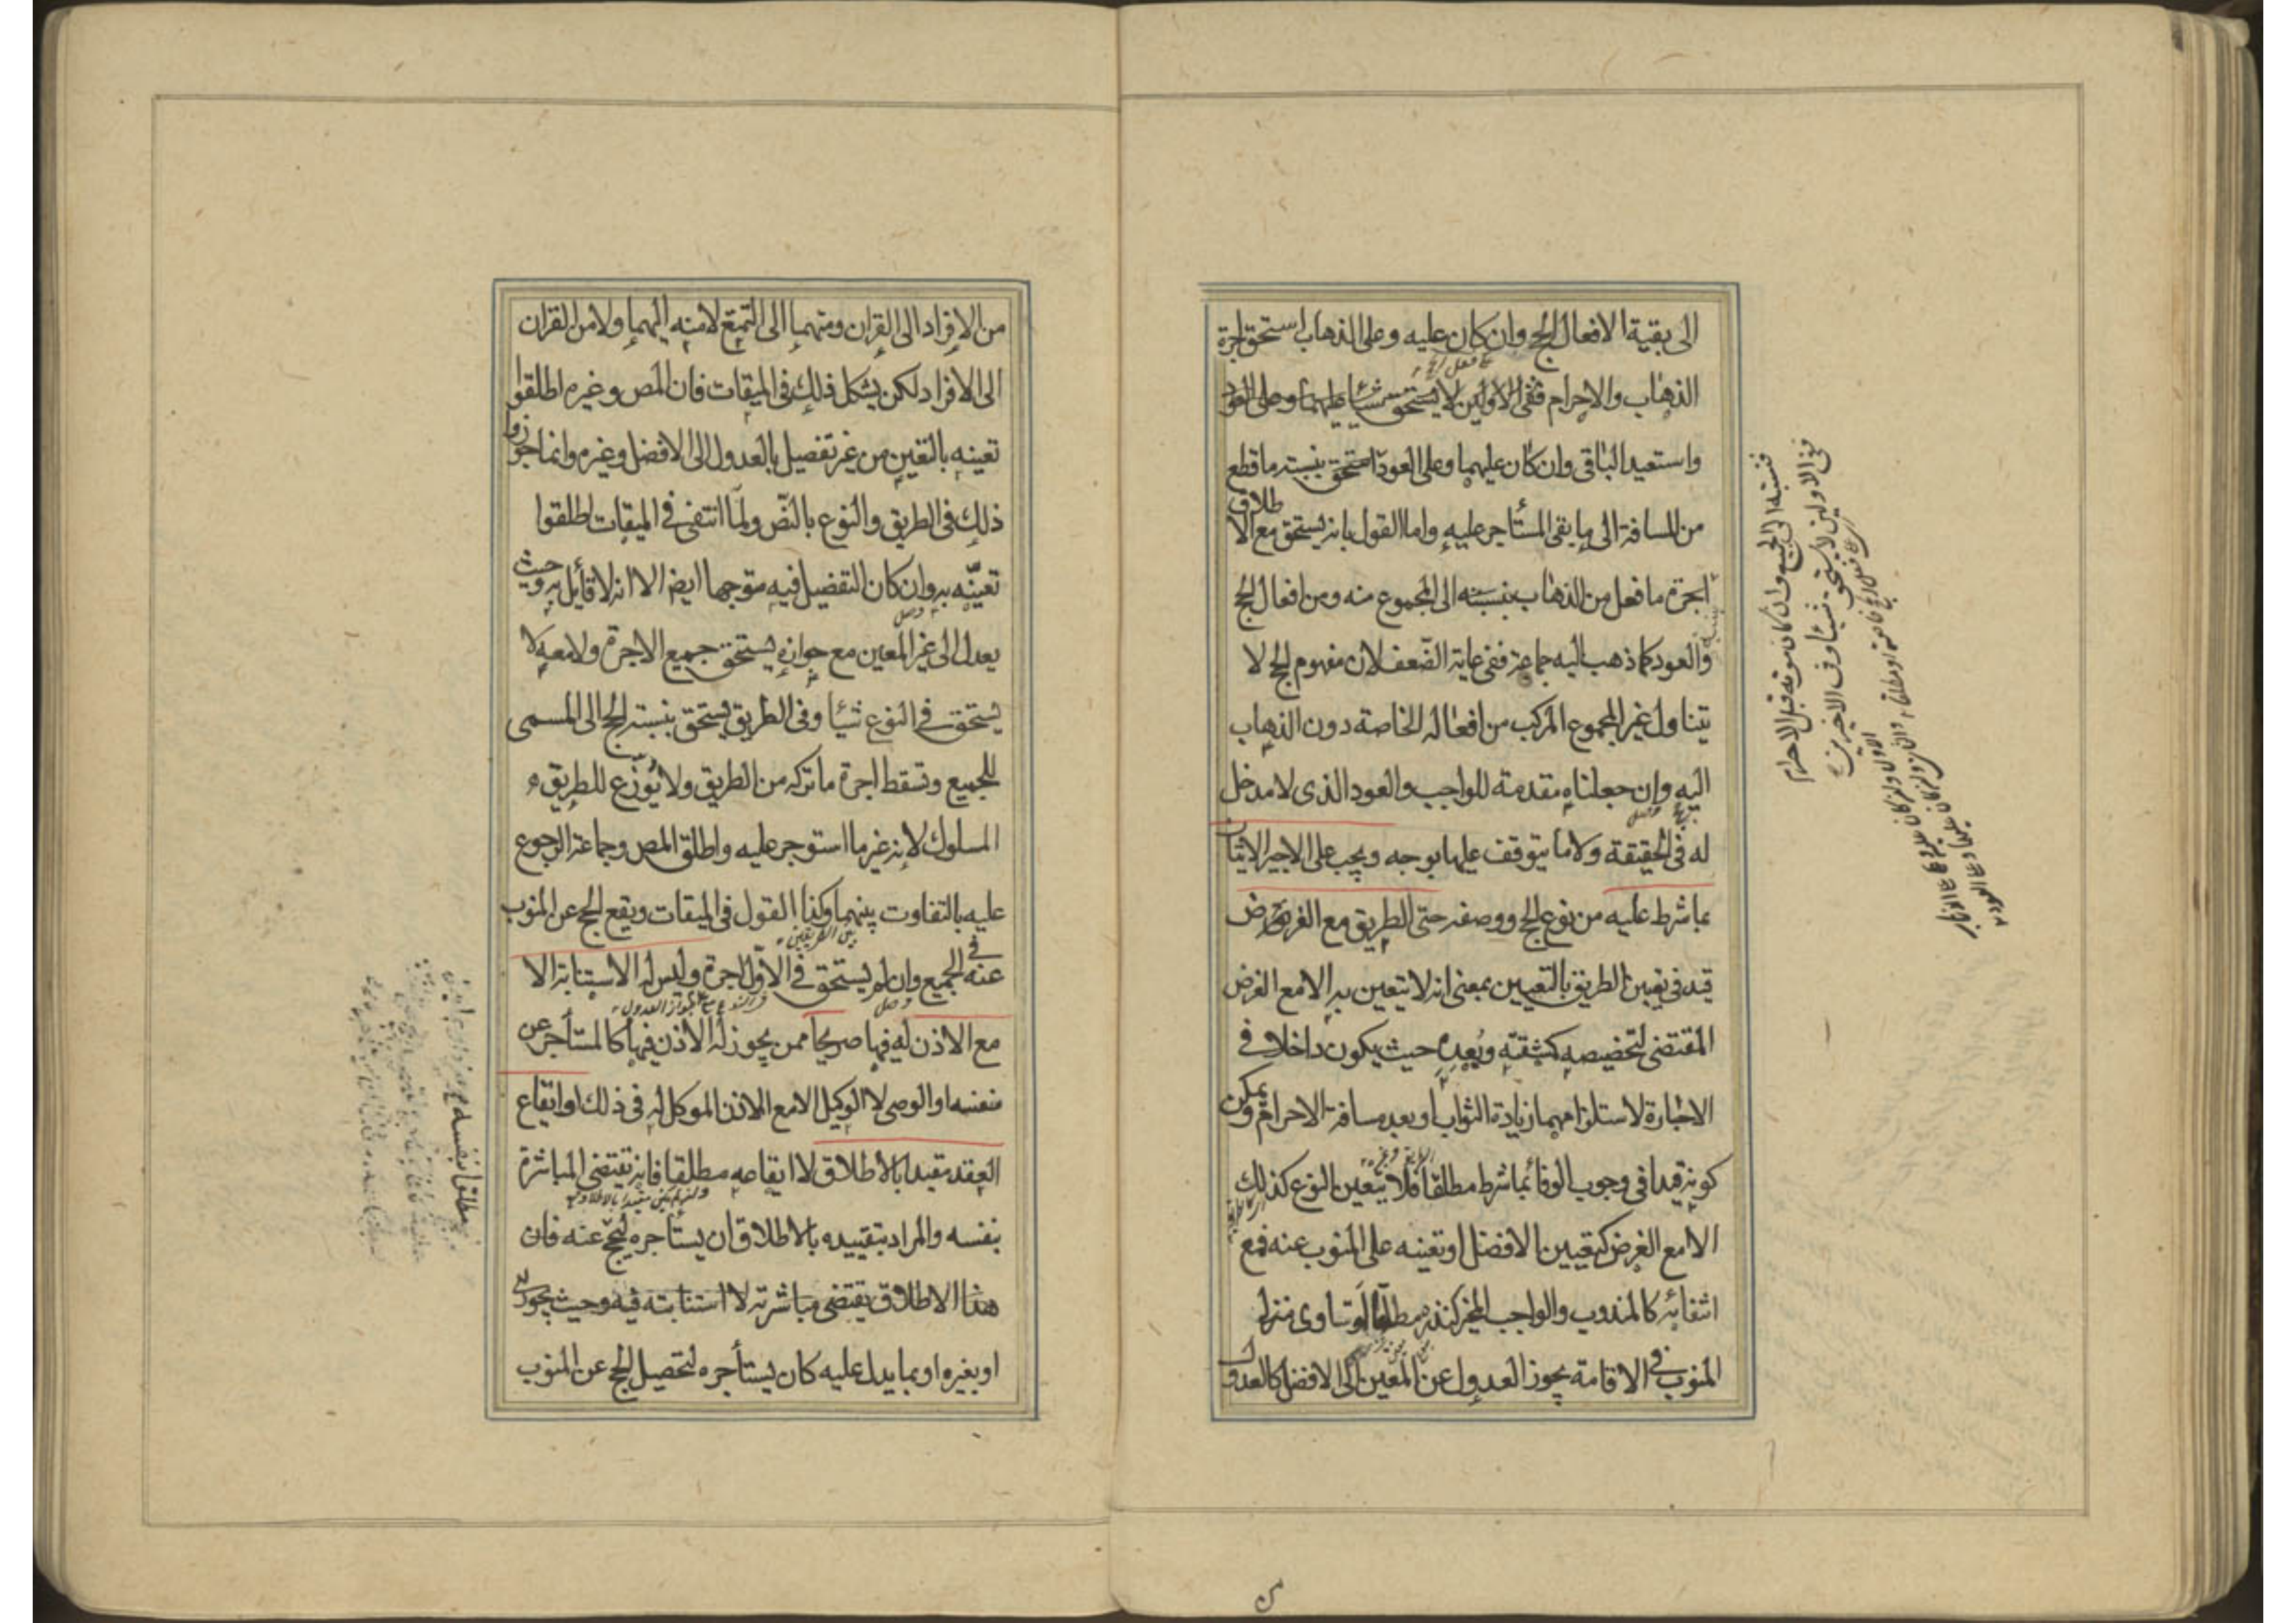 الى بقية الافعال الحج وان كان عليه وعلى الذهاب استحق اجرة
الذهاب والاحرام ففى الاولين لا يستحق شيئا عليهما وعلى العود
واستعيد الباقى وان كان عليهما وعلى العود استحق بنسبته ما قطع
من المسافة الى ما بقى المستأجر عليه واما القول بانه يستحق مع الاطلاق
اجرة ما فعل من الذهاب بنسبته الى المجموع منه ومن افعال الحج
والعود كما ذهب اليه جماعة ففى غاية الضعف لان مفهوم الحج لا
يتناول غير المجموع المركب من افعاله الخاصة دون الذهاب
اليه وان جعلناه مقدمة للواجب والعود الذى لا مدخل
له فى الحقيقة ولا ما يتوقف عليها بوجه ويجب على الاجير الاتيان
بما شرط عليه من نوع الحج ووصفه حتى الطريق مع الغرض
قيد فى تعيين الطريق بالتعيين بمعنى انه لا يتعين به الا مع الغرض
المقتضى لتخصيصه كمشقته وبعده حيث يكون داخلا فى
الاجارة لاستلزامهما زيادة الثواب او بعد مسافة الاحرام ويمكن
كونه قيدا فى وجوب الوفاء بما شرط مطلقا فلا يتعين النوع كذلك
الا مع الغرض كتعيين الافضل او تعينه على المنوب عنه فمع
انتفائه كالمندوب والواجب المخير كنذره مطلقا او تساوى منزلى
المنوب فى الاقامة يجوز العدول عن المعين الى الافضل كالعدول
فنسبته الى الجميع وان كان موته قبل الاحرام
ففى الاولين لا يستحق شيئا وفى الاخيرين
من الافراد الى القران ومنهما الى التمتع لا منه اليهما ولا من القران
الى الافراد لكن يشكل ذلك فى الميقات فان المص وغيره اطلقوا
تعينه بالتعيين من غير تفصيل بالعدول الى الافضل وغيره وانما جوزوا
ذلك فى الطريق والنوع بالنص ولما انتفى فى الميقات اطلقوا
تعينه به وان كان التفضيل فيه متوجها ايضا الا انه لا قائل به وحيث
يعدل الى غير المعين مع جوازه يستحق جميع الاجرة ولا معه لا
يستحق فى النوع شيئا وفى الطريق يستحق بنسبته الحج الى المسمى
للجميع وتسقط اجرة ما تركه من الطريق ولا يوزع للطريق
المسلوك لانه غير ما استوجر عليه واطلق المص وجماعة الرجوع
عليه بالتفاوت بينهما وكذا القول فى الميقات ويقع الحج عن المنوب
بين الطريقين
عنه فى الجميع وان لم يستحق فى الاول اجرة وليس له الاستنابة الا
مع الاذن له فيها صريحا ممن يجوز له الاذن فيها كالمستأجر عن
نفسه او الوصى لا الوكيل الا مع الاذن الموكل له فى ذلك او ايقاع
العقد مقيدا بالاطلاق لا ايقاعه مطلقا فانه يقتضى المباشرة
بنفسه والمراد بتقييده بالاطلاق ان يستأجره ليحج عنه فان
هذا الاطلاق يقتضى مباشرته لا استنابته فيه وحيث يجوز له
او بغيره او بما يدل عليه كان يستأجره لتحصيل الحج عن المنوب
مطلقا بنفسه